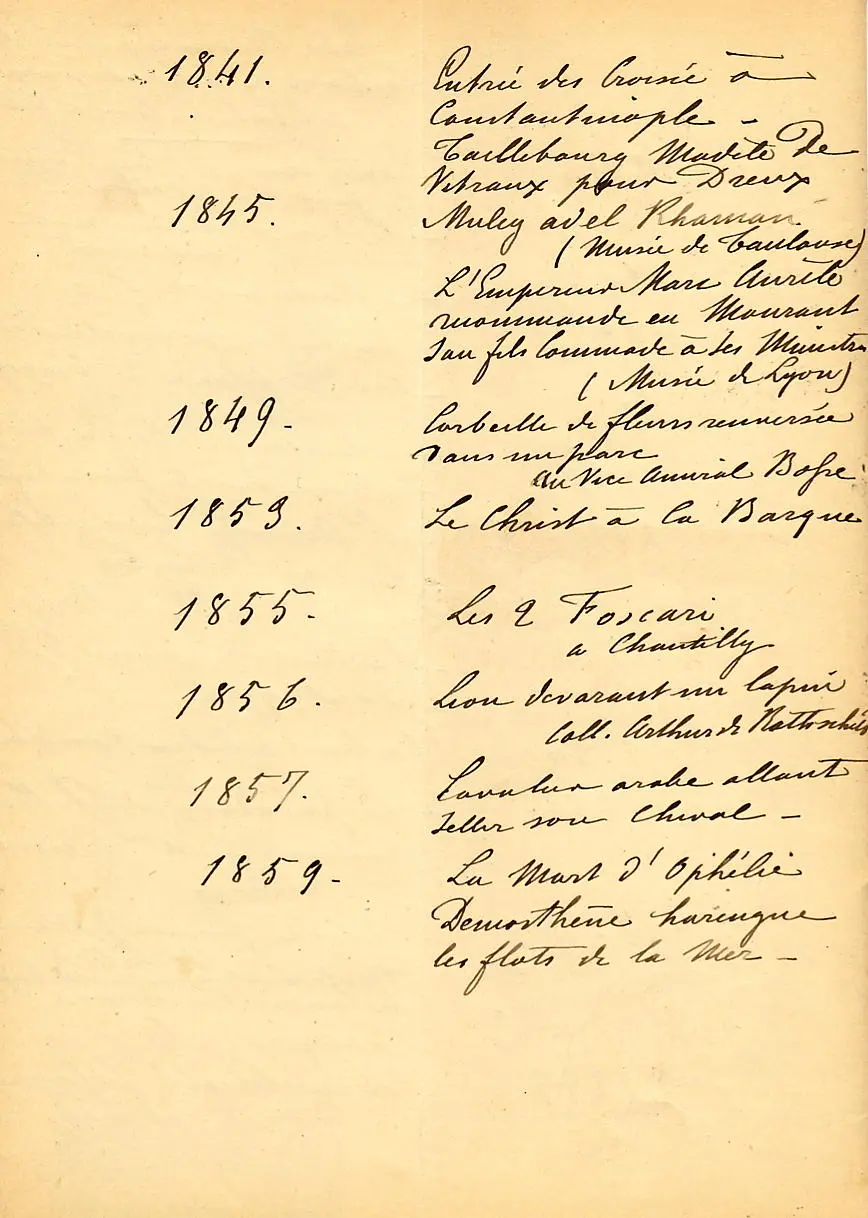 1841. Entrée des Croisée à
Constantinople -
Taillebourg Modèle De
Vitraux pour Dreux
1845. Muley adel Rhaman
(Musée de Toulouse)
L'Empereur Marc Aurèle
recommande en Mourant
son fils Commode à ses Ministres
(Musée de Lyon)
1849. Corbeille de fleurs renversée
dans un parc
au Vice Amiral
1853. Le Christ à la Barque
1855. Les 2 Foscari
a Chantilly
1856. Lion devorant un lapin
Coll. Arthur de Rothschild
1857. Cavalier arabe allant
seller son Cheval -
1859. La Mort d'Ophélie
Demosthène harengue
les flots de la Mer -